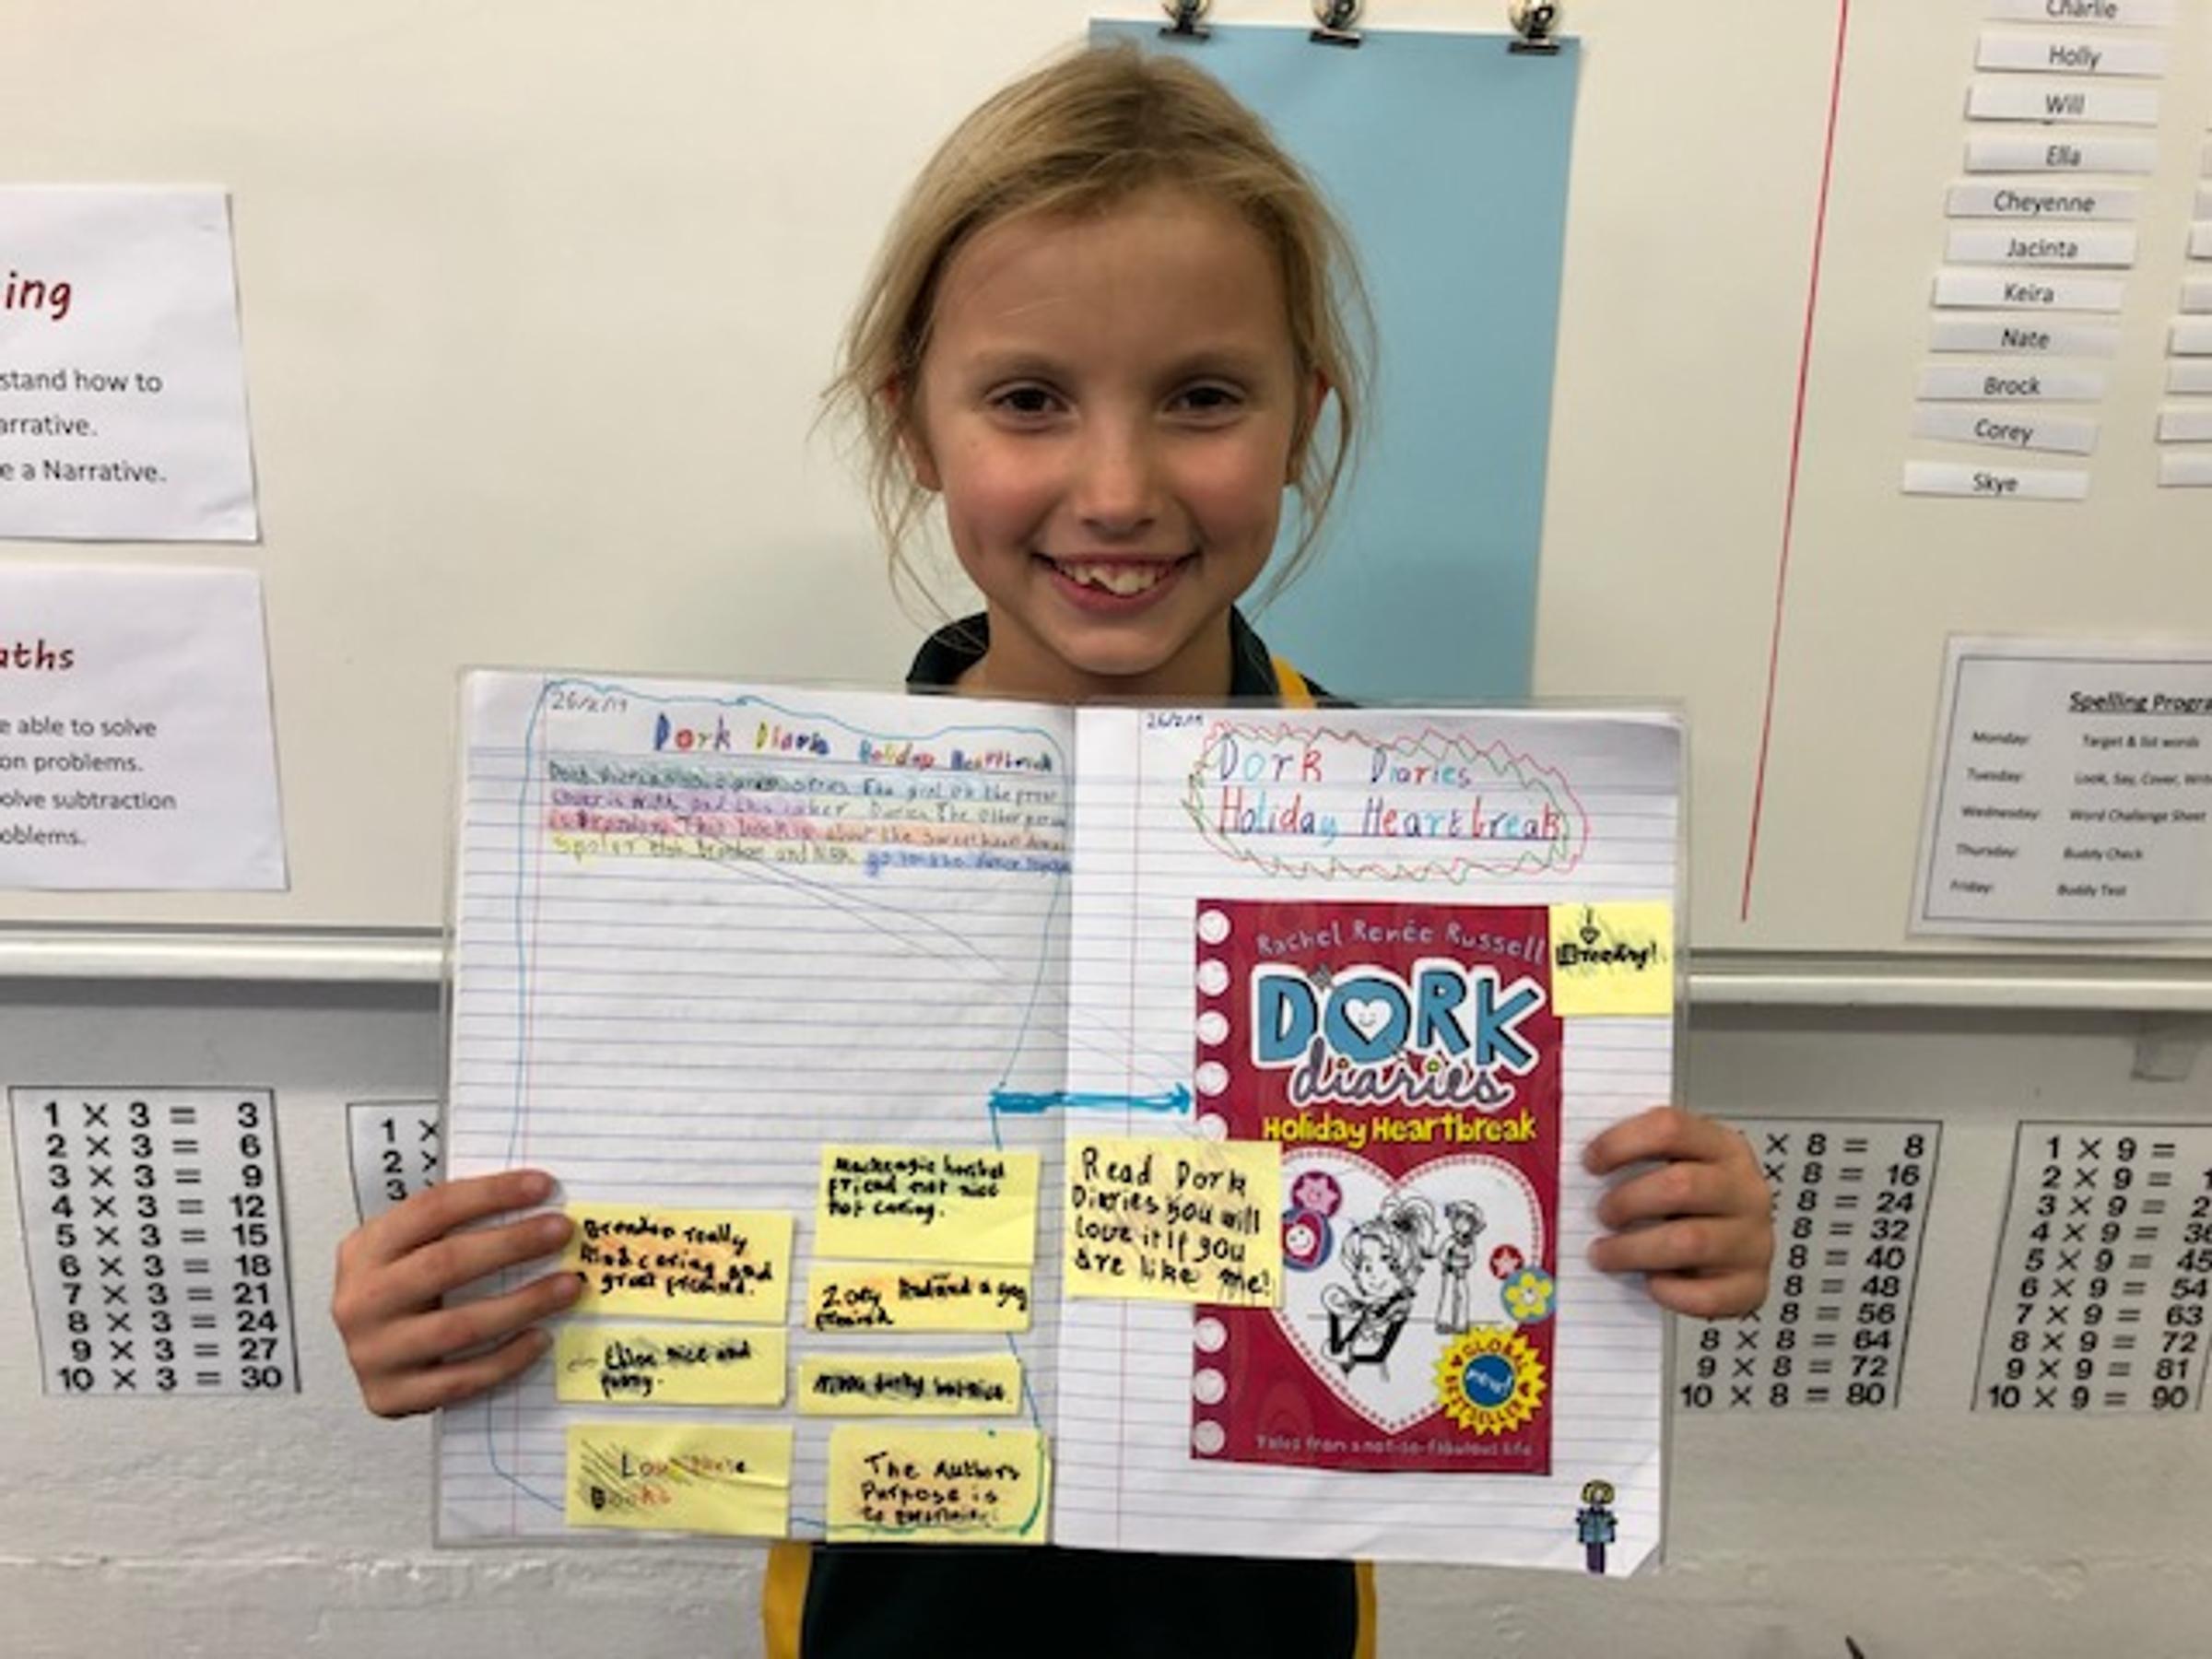 ing
stand how to
arrative.
e a Narrative.
aths
e able to solve
on problems.
olve subtraction
oblems.
Charlie
Holly
Will
Ella
Cheyenne
Jacinta
Keira
Nate
Brock
Corey
Skye
Spelling Progra
Monday: Target & list words
Tuesday: Look, Say, Cover, Writ
Wednesday: Word Challenge Sheet
Thursday: Buddy Check
Friday: Buddy Test
1 X 3 = 3
2 X 3 = 6
3 X 3 = 9
4 X 3 = 12
5 X 3 = 15
6 X 3 = 18
7 X 3 = 21
8 X 3 = 24
9 X 3 = 27
10 X 3 = 30
1 X
2 X
3
26/2/19
Dork Diaries Holiday Heartbreak
the girl on the front
The other person
is Brandon. This book is about the sweetheart dance
and Nikki go to the dance
Brandon really
kind caring and
a great friend.
Mackenzie
friend not nice
not caring.
Zoey kind and a
friend
Chloe nice and
funny.
Love these
Books
The Authors
Purpose is
to
26/2/19
Dork Diaries
Holiday Heartbreak
Rachel Renée Russell
DORK
diaries
Holiday Heartbreak
GLOBAL
BESTSELLER
Tales from a not-so-fabulous life
Read Dork
Diaries you will
love it if you
are like me!
X 8 = 8
X 8 = 16
8 = 24
8 = 32
8 = 40
8 = 48
X 8 = 56
8 X 8 = 64
9 X 8 = 72
10 X 8 = 80
1 X 9 =
2 X 9 = 1
3 X 9 = 2
4 X 9 = 36
5 X 9 = 45
6 X 9 = 54
7 X 9 = 63
8 X 9 = 72
9 X 9 = 81
10 X 9 = 90